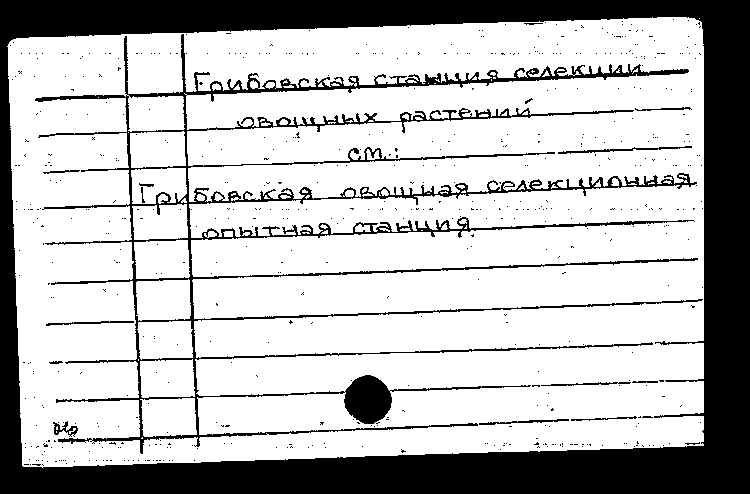 Грибовская станция селекции
овощных растений
см.:
Грибовская овощная селекционная
опытная станция